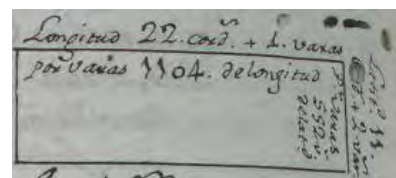 Longitud 22. cord.ˢ + 4. varas
por varas 1104. de longitud
p.ʳ varas
552 v.
de lat.ᵈ
Lat.ᵈ 11
+ 2 var.ˢ